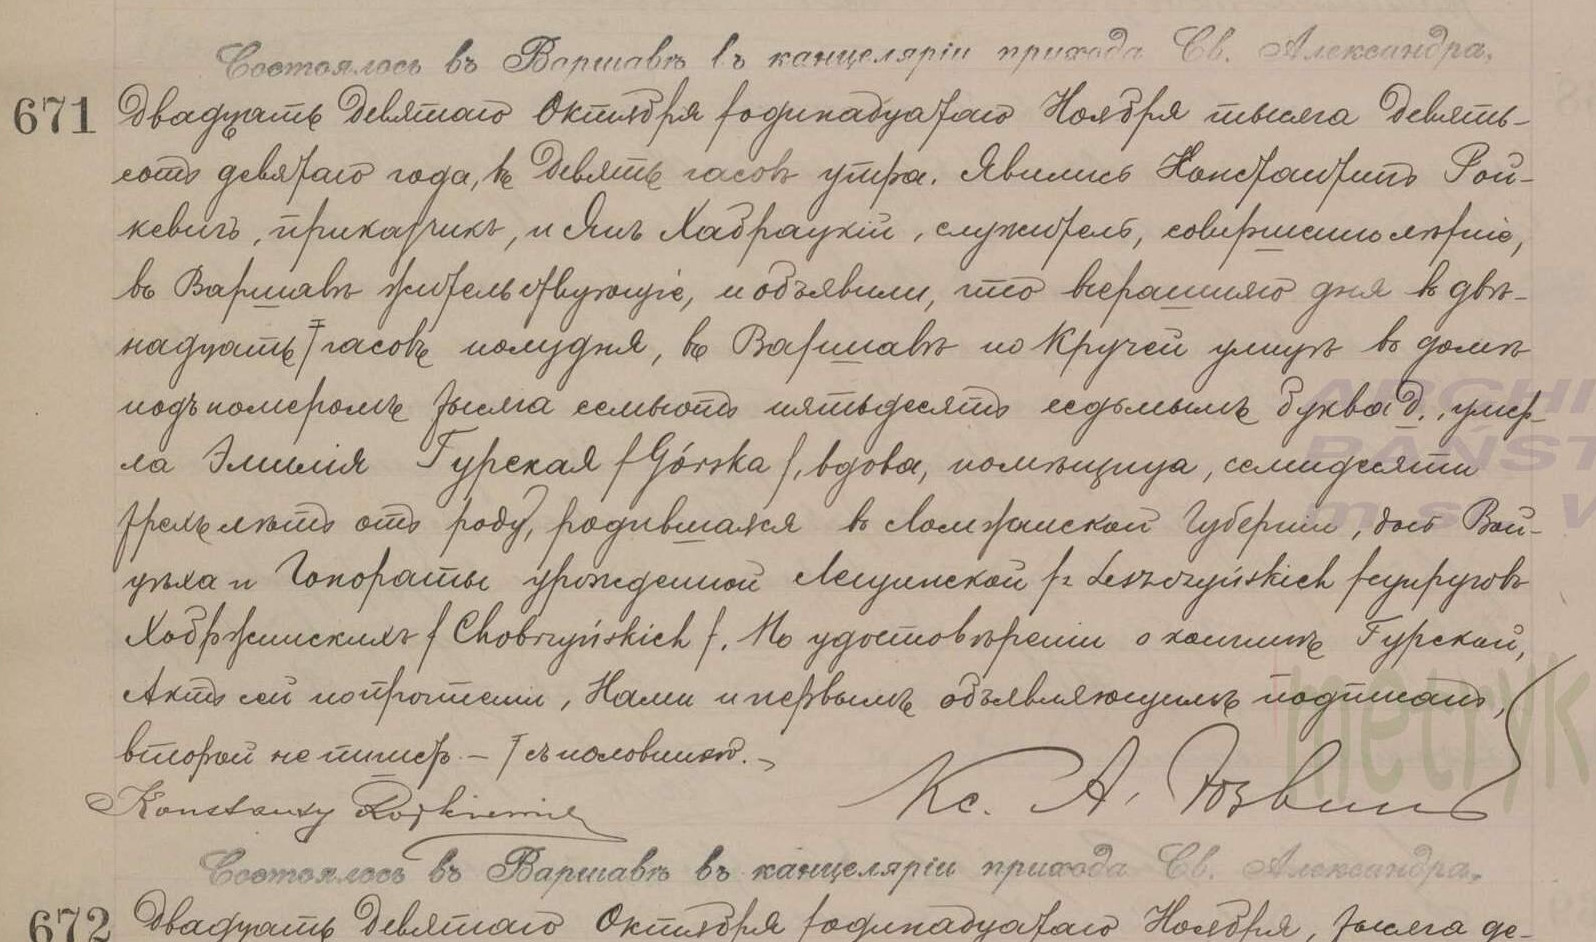 Состоялось въ Варшавѣ въ канцеляріи прихода Св. Александра,
671 Двадцать Девятаго Октября /одинадцатаго Ноября тысяча Девять-
сотъ девятаго года, въ Девять часовъ утра. Явились Константинъ Рой-
кевичъ, прикащикъ, и Янъ Хабрацкій, служитель, совершеннолѣтніе,
въ Варшавѣ жительствующіе, и объявили, что вчерашняго дня въ двѣ-
надцать часовъ полудня, въ Варшавѣ по Кручей улицѣ въ домѣ
подъ номеромъ тысяча семьсотъ пятьдесятъ седьмымъ буква д., умер-
ла Эмилія Гурская /Górska/, вдова, помѣщица, семидесяти
трехъ лѣтъ отъ роду, родившаяся въ Ломжинской Губерніи, дочь Вой-
цѣха и Гонораты урожденной Лещинской /z Leszczyńskich/ супруговъ
Хобржинскихъ /Chobrzyńskich/. По удостовѣреніи о кончинѣ Гурской,
Актъ сей по прочтеніи, Нами и первымъ объявляющимъ подписанъ,
второй не пишетъ. – / съ половиною. –
Konstanty Roykiewicz Кс. А.
Состоялось въ Варшавѣ въ канцеляріи прихода Св. Александра,
672 Двадцать Девятаго Октября /одинадцатаго Ноября, тысяча де-
ARCHI
PAŃST
m.s V
metryk